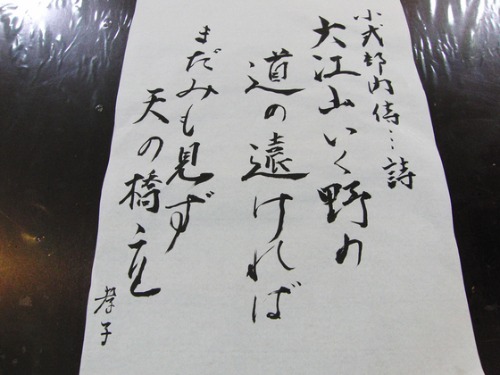 小式部内侍…詩
大江山いく野の
道の遠ければ
まだみも見ず
天の橋立
孝子